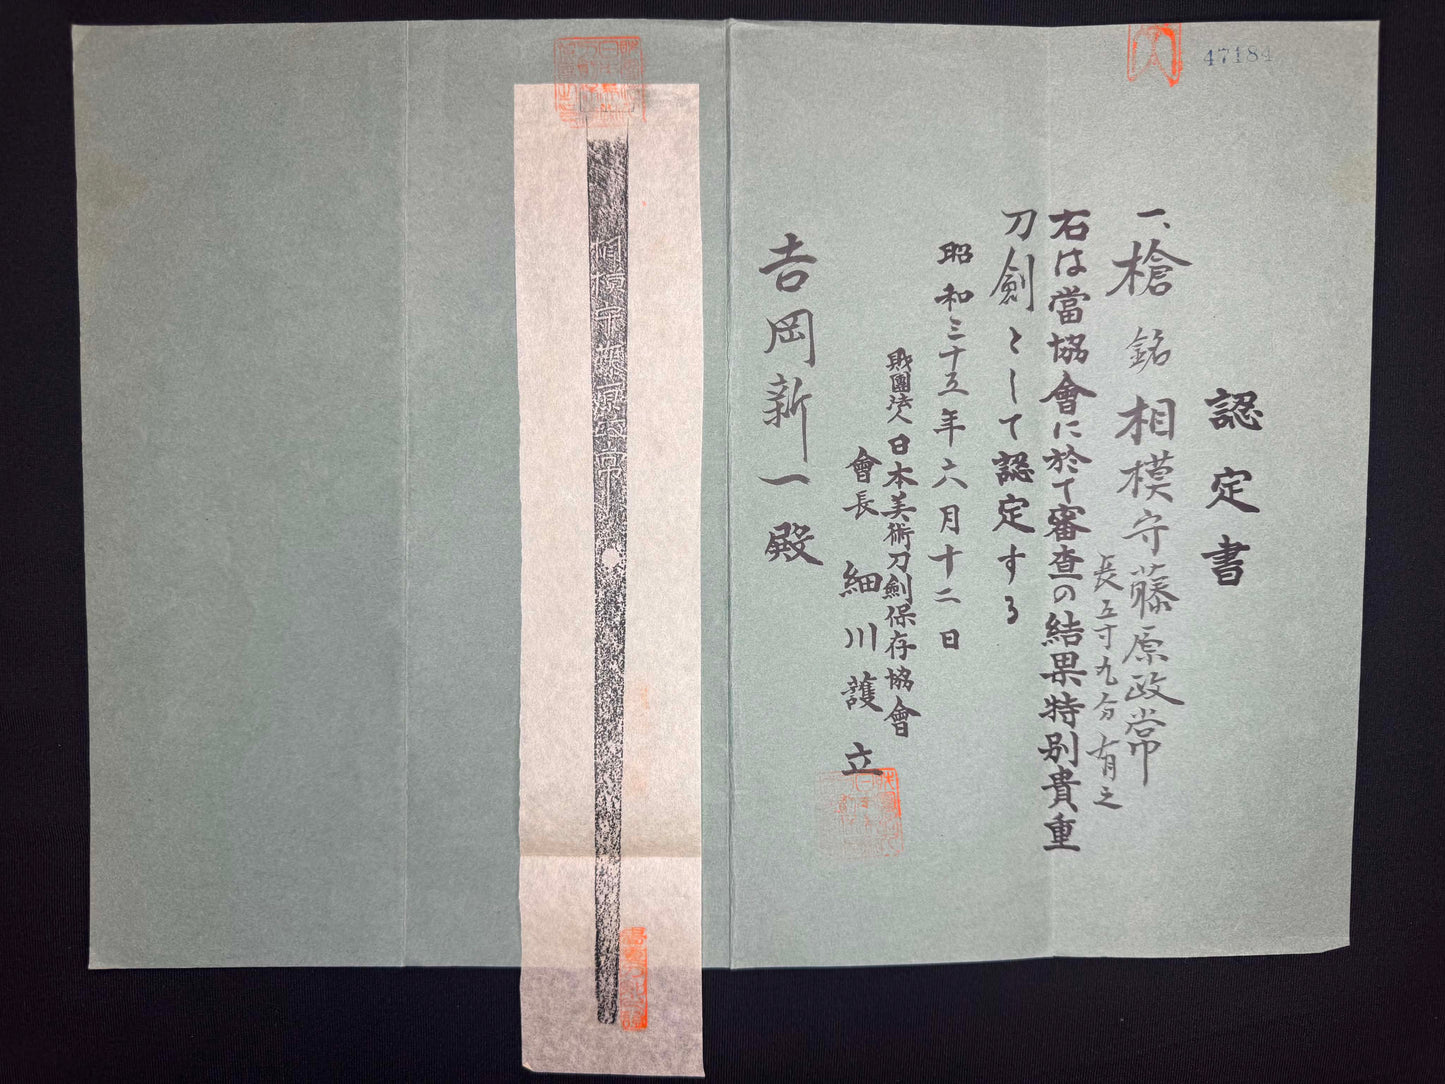 47184
認定書
一、槍 銘 相模守藤原政常
長五寸九分有之
右は當協會に於て審査の結果特別貴重
刀劍として認定する
昭和三十五年六月十二日
財團法人日本美術刀劍保存協會
會長 細川護立
吉岡新一殿
相模守藤原政常